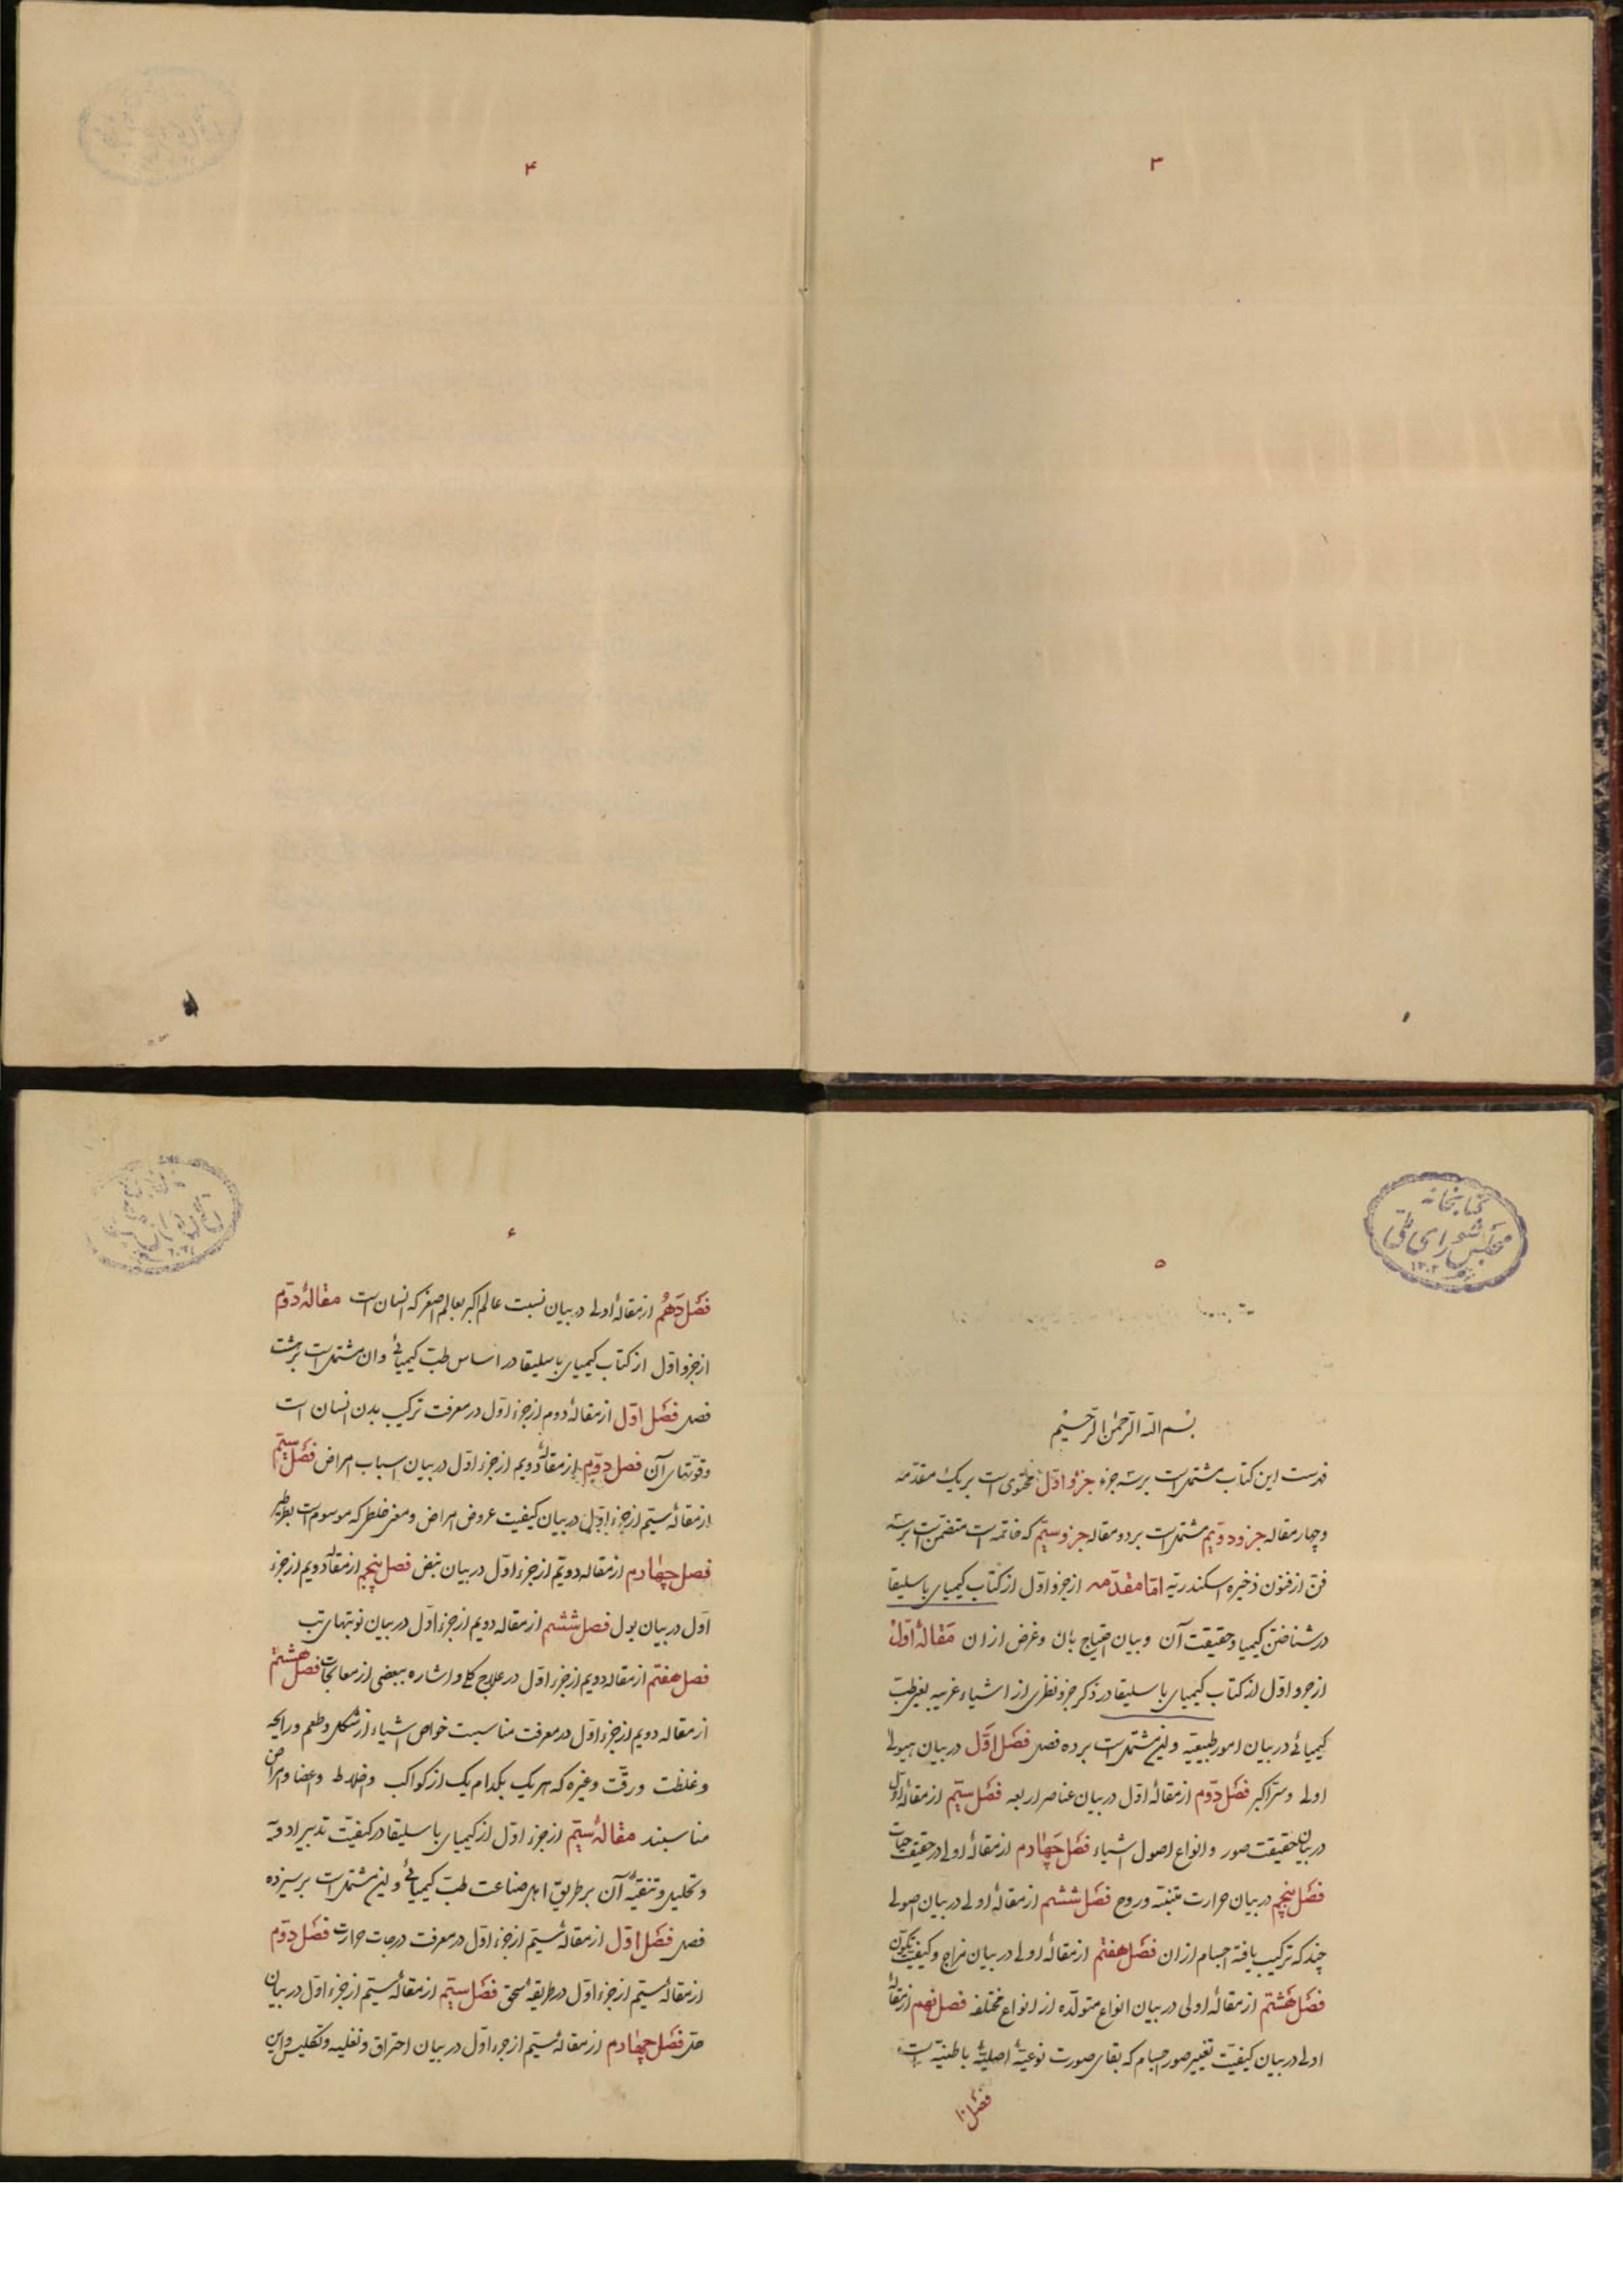 ۳
۴
کتابخانه
مجلس شورای ملی
۱۳۰۲
۵
بسم الله الرحمن الرحیم
فهرست این کتاب مشتمل است بر سه جزء جزو اوّل محتوی است بر یک مقدّمه
و چهار مقاله جزو دویّم مشتمل است بر دو مقاله جزو سیّم که خاتمه است متضمّن است بر سه
فن از فنون ذخیره اسکندریّه امّا مقدّمه از جزو اوّل از کتاب کیمیای باسلیقا
در شناختن کیمیا و حقیقت آن و بیان احتیاج بان و غرض از ان مقالهٔ اوّل
از جزو اوّل از کتاب کیمیای باسلیقا در ذکر جزو نظری از اشیاء غریبه بغیر طب
کیمیائی در بیان امور طبیعیّه و این مشتمل است بر ده فصل فصل اوّل در بیان هیولی
اولی و سرّ اکبر فصل دوّم از مقالهٔ اوّل در بیان عناصر اربعه فصل سیّم از مقالهٔ اوّل
در بیان حقیقت صور و انواع اصول اشیاء فصل چهارم از مقالهٔ اولی در حقیقت حیات
فصل پنجم در بیان حرارت و روح فصل ششم از مقالهٔ اولی در بیان اصولی
چند که ترکیب یافته اجسام از ان فصل هفتم از مقالهٔ اولی در بیان مزاج و کیفیت تکوّن
فصل هشتم از مقالهٔ اولی در بیان انواع متولّده از انواع مختلفه فصل نهم از مقالهٔ
اولی در بیان کیفیّت تغییر صور اجسام که بقای صورت نوعیّهٔ اصلیّهٔ باطنیّه است
فصل ۱۰
۶
فصل دهم از مقالهٔ اولی در بیان نسبت عالم اکبر بعالم اصغر که انسان است مقالهٔ دوّم
از جزو اوّل از کتاب کیمیای باسلیقا در اساس طبّ کیمیائی و ان مشتمل است بر هشت
فصل فصل اوّل از مقالهٔ دوم از جزء اوّل در معرفت ترکیب بدن انسان است
و قوّتهای آن فصل دوّم از مقالهٔ دویم از جزء اوّل در بیان اسباب امراض فصل سیّم
از مقالهٔ سیّم از جزء اوّل در بیان کیفیت عروض امراض و معنی خلطی که موسوم است بطرطیر
فصل چهارم از مقاله دویّم از جزء اوّل در بیان نبض فصل پنجم از مقالهٔ دویم از جزء
اوّل در بیان بول فصل ششم از مقاله دویم از جزء اوّل در بیان نوبتهای تب
فصل هفتم از مقاله دویم از جزء اوّل در علاج کلی و اشاره ببعضی از معالجات فصل هشتم
از مقاله دویم از جزء اوّل در معرفت مناسبت خواص اشیاء از شکل و طعم و رایحه
و غلظت و رقّت و غیره که هر یک بکدام یک از کواکب و اخلاط و اعضا و امراض
مناسبند مقالهٔ سیّم از جزء اوّل از کیمیای باسلیقا در کیفیّت تدبیر ادویه
و تحلیل و تنقیهٔ آن بر طریق اهل صناعت طبّ کیمیائی و این مشتمل است بر سیزده
فصل فصل اوّل از مقالهٔ سیّم از جزء اوّل در معرفت درجات حرارت فصل دوّم
از مقالهٔ سیّم از جزء اوّل در طریقهٔ سحق فصل سیّم از مقالهٔ سیّم از جزء اوّل در بیان
حل فصل چهارم از مقالهٔ سیّم از جزء اوّل در بیان احتراق و تغلیه و تکلیس و این